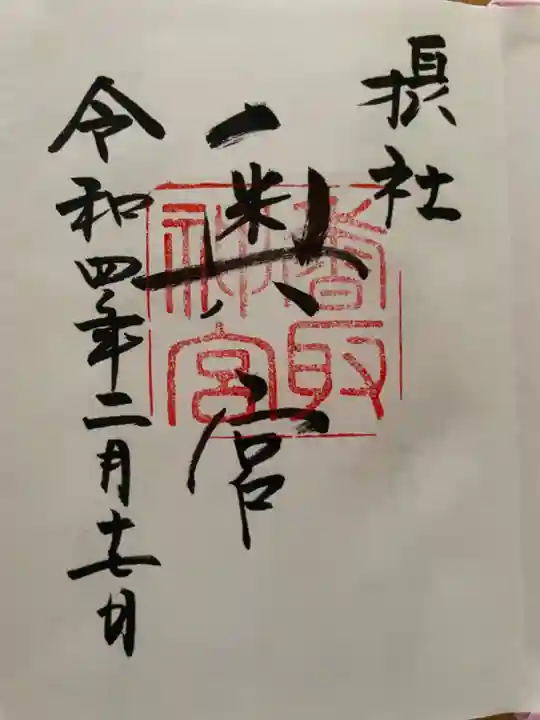 摂社
奥宮
香取
神宮
令和四年二月十七日